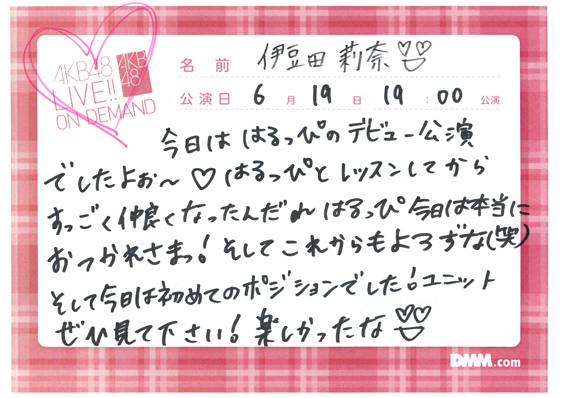 AKB48
LIVE!!
ON DEMAND
AKB
48
名前 伊豆田 莉奈
公演日 6月19日 19:00 公演
今日は はるっぴのデビュー公演
でしたよぉ〜♡はるっぴとレッスンしてから
すっごく仲良くなったんだれ はるっぴ今日は本当に
おつかれさまっ！そしてこれからもよろずな(笑)
そして今日は初めてのポジションでした！ユニット
ぜひ見て下さい！楽しかったな
DMM.com